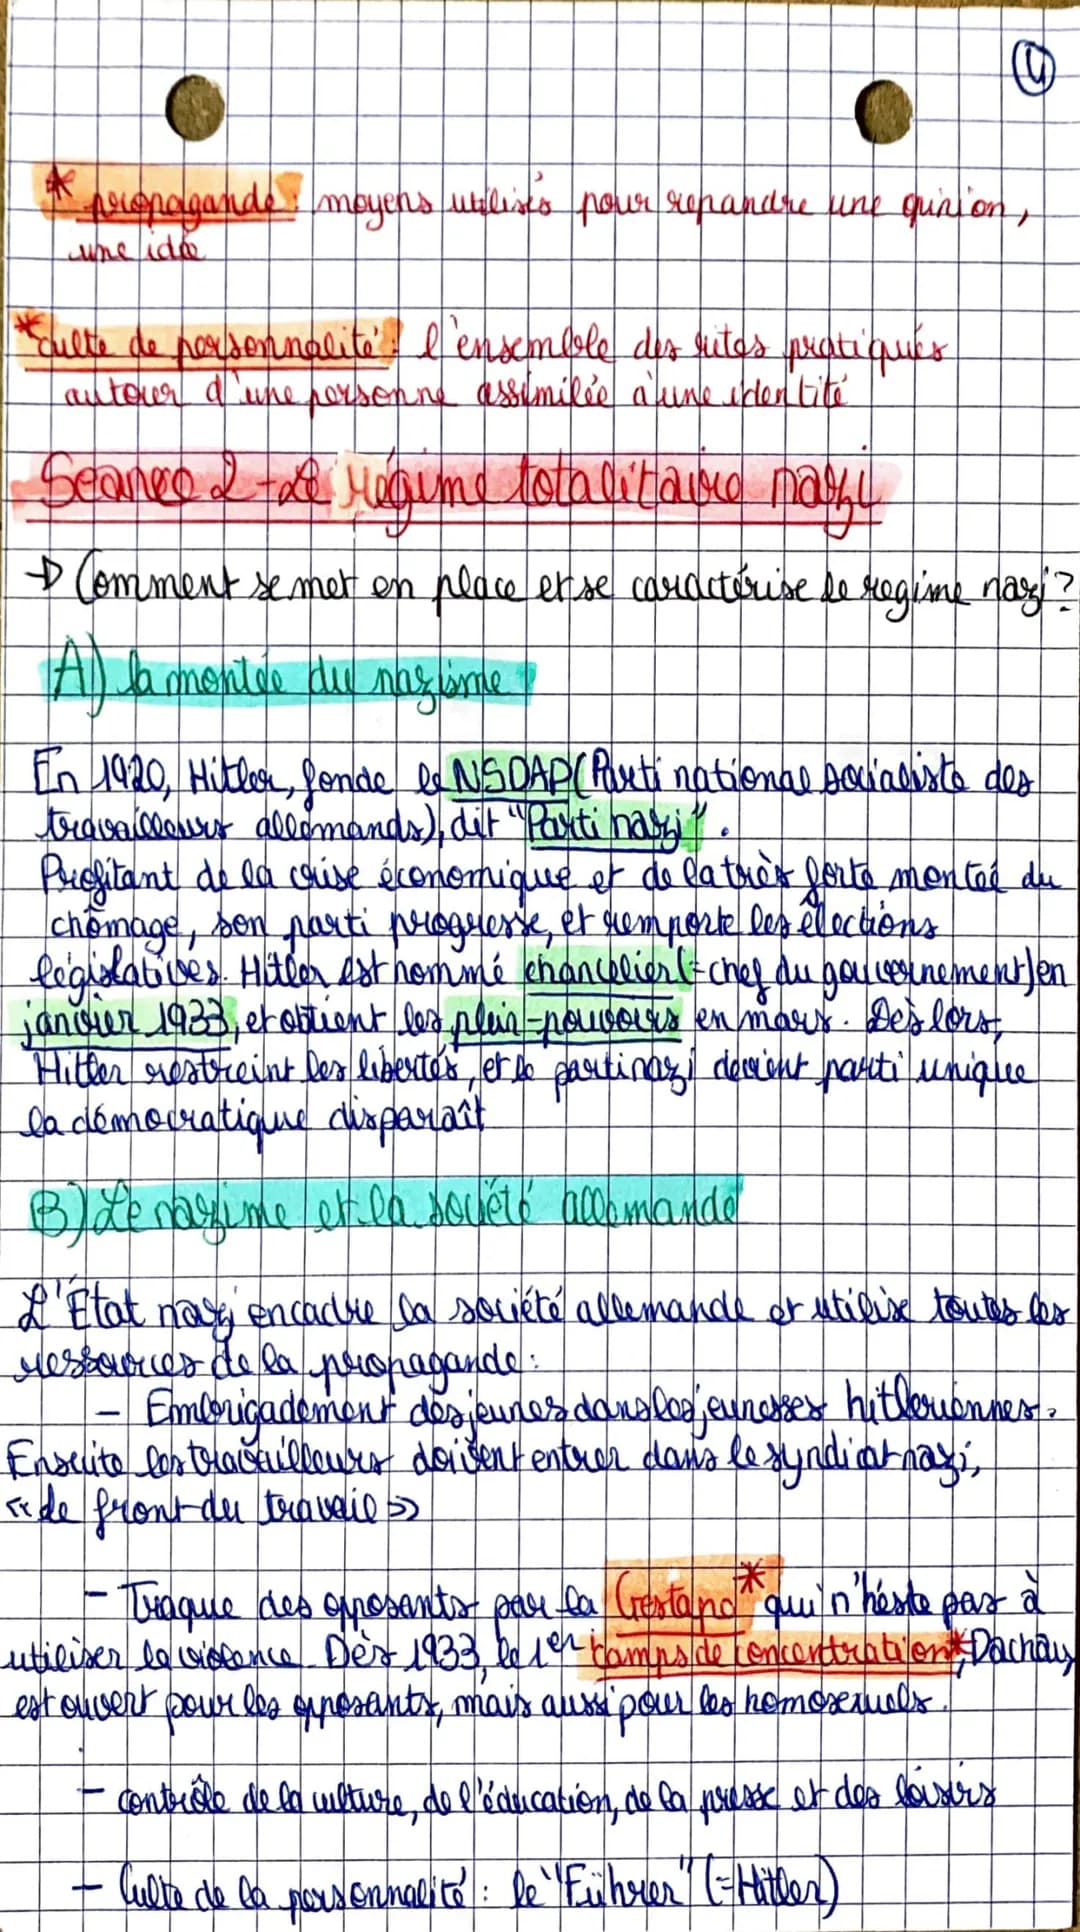 4
* propagande : moyens utilisés pour repandre une opinion,
une idée
* culte de personnalité : l'ensemble des rites pratiqués
autour d'une personne assimilée à une identité
Séance 2 - Le régime totalitaire nazi
→ Comment se met en place et se caractérise le regime nazi ?
A) la montée du nazisme
En 1920, Hitler, fonde le NSDAP (Parti national socialiste des
travailleurs allemands), dit "Parti nazi".
Profitant de la crise économique et de la très forte montée du
chômage, son parti progresse, et remporte les élections
législatives. Hitler est nommé chancelier (= chef du gouvernement) en
janvier 1933, et obtient les plein-pouvoirs en mars. Dès lors,
Hitler restreint les libertés, et le parti nazi devient parti unique
la démocratique disparaît
B) Le nazime et la société allemande
L'État nazi encadre la société allemande et utilise toutes les
ressources de la propagande :
- Embrigadement des jeunes dans les jeunesses hitleriennes.
Ensuite les travailleurs doivent entrer dans le syndicat nazi,
« de front du travail »
- Traque des opposants par la Gestapo* qui n'hésite pas à
utiliser la violence. Dès 1933, le 1er camps de concentration*, Dachau,
est ouvert pour les opposants, mais aussi pour les homosexuels.
- contrôle de la culture, de l'éducation, de la presse et des loisirs
- Culte de la personnalité : le "Führer" (=Hitler)